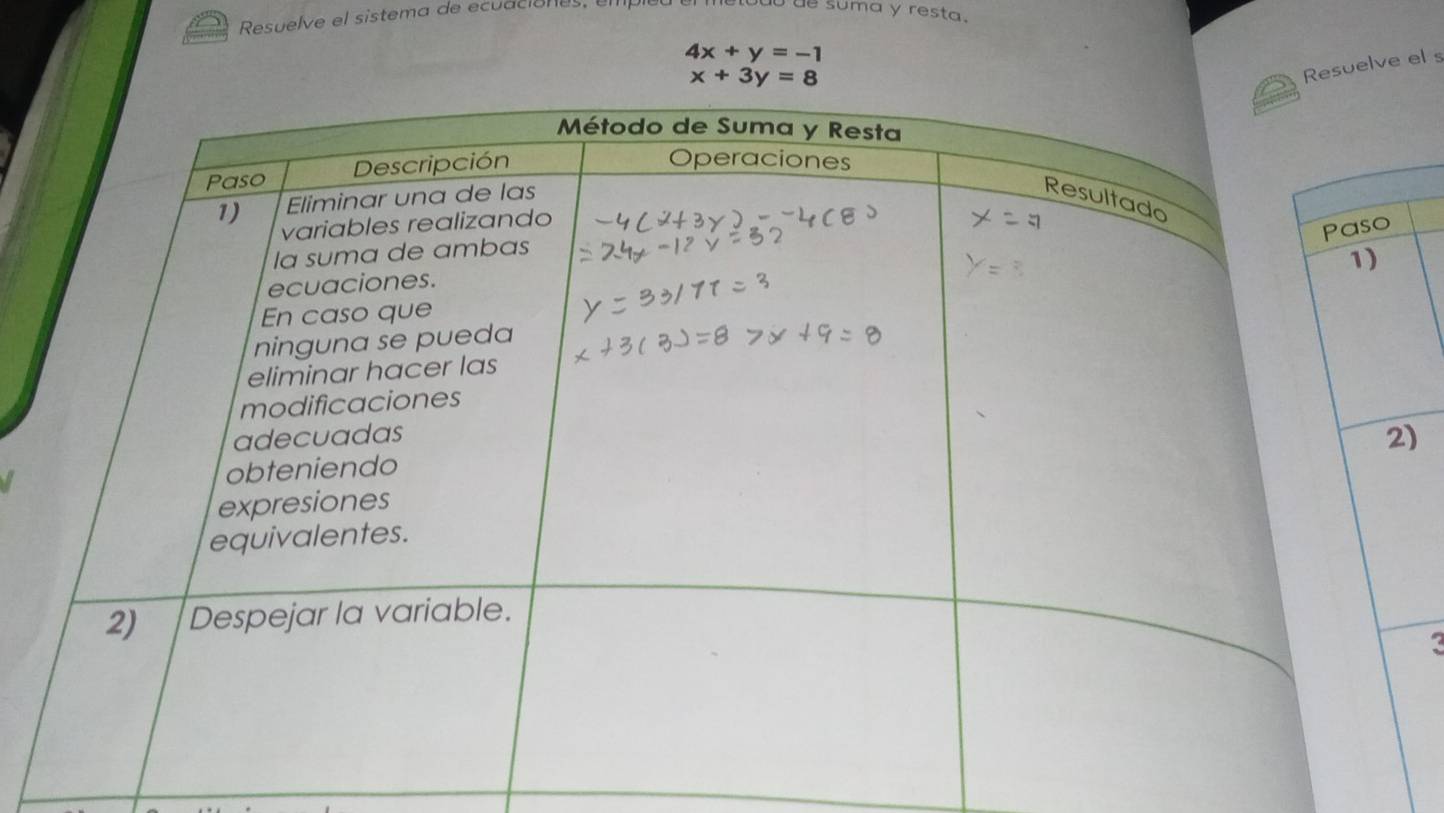 Resuelve el sistema de ecuaciones, de suma y resta.
4x + y = -1
x + 3y = 8
Resuelve el s
Método de Suma y Resta
Paso Descripción Operaciones Resultado
1) Eliminar una de las
variables realizando
la suma de ambas
ecuaciones.
En caso que
ninguna se pueda
eliminar hacer las
modificaciones
adecuadas
obteniendo
expresiones
equivalentes.
-4(x+3y)=-4(8)
-12y=32
y=33/11=3
x+3(3)=8 >x+9=8
x=
y=
2) Despejar la variable.
Paso
1)
2)
3